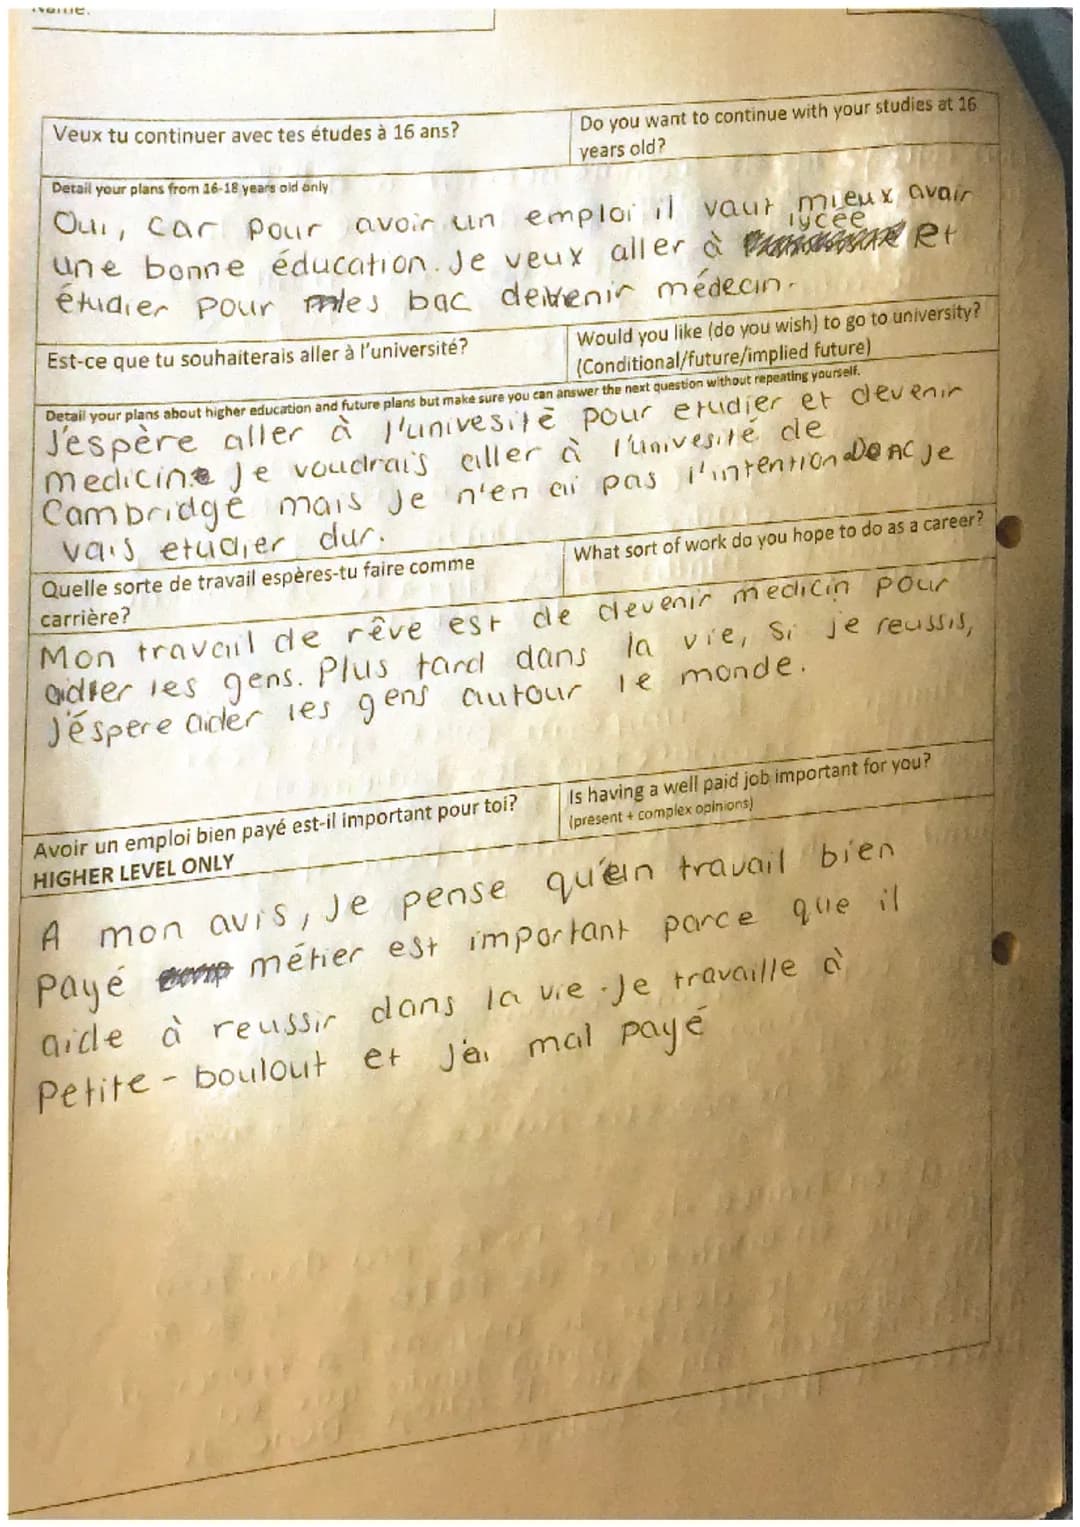 Name:
Veux tu continuer avec tes études à 16 ans?
Do you want to continue with your studies at 16
years old?
Detail your plans from 16-18 years old only
Oui, car pour avoir un emploi il vaut mieux avair
lycée
une bonne éducation. Je veux aller à et
étudier pour mes bac devenir médecin.
Est-ce que tu souhaiterais aller à l'université?
Would you like (do you wish) to go to university?
(Conditional/future/implied future)
Detail your plans about higher education and future plans but make sure you can answer the next question without repeating yourself.
J'espère aller à l'univesité pour etudier et devenir
medicine Je voudrais aller à l'univesité de
Cambridge mais Je n'en ai pas l'intention Donc Je
vais etudier dur.
Quelle sorte de travail espères-tu faire comme
carrière?
What sort of work do you hope to do as a career?
Mon travail de rêve est de devenir medicin pour
aider les gens. Plus tard dans la vie, si je reussis,
J'éspere aider les gens autour le monde.
Avoir un emploi bien payé est-il important pour toi?
HIGHER LEVEL ONLY
Is having a well paid job important for you?
(present + complex opinions)
A mon avis, Je pense qu'un travail bien
payé métier est important parce que il
aide à reussir dans la vie. Je travaille à
Petite-boulout et J'ai mal payé